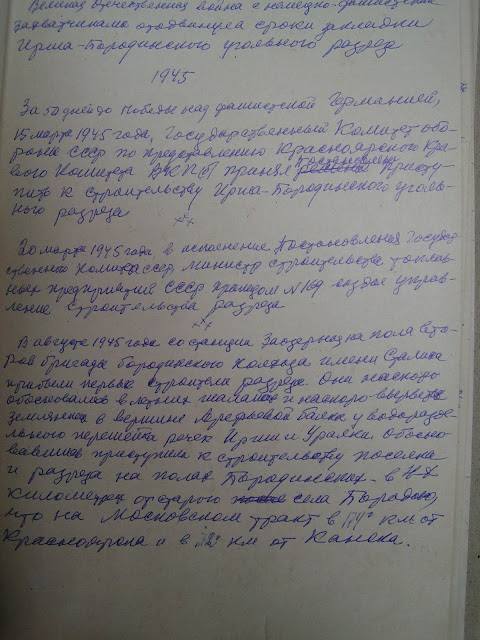 Великая Отечественная война с немецко-фашистскими
захватчиками отодвинула сроки закладки
Ирша-Бородинского угольного разреза
1945
За 50 дней до Победы над фашистской Германией,
15 марта 1945 года, Государственный Комитет обо-
роны СССР по представлению Красноярского Кра-
евого Комитета ВКПб принял постановление присту-
пить к строительству Ирша-Бородинского уголь-
ного разреза
20 марта 1945 года, в исполнение Постановления Государ
ственного Комитета СССР министр строительства топлив-
ных предприятий СССР приказом №169 создал управ-
ление строительства разреза
В августе 1945 года со станции Заозерная на поля вто-
рой бригады Бородинского колхоза имени Сталина
прибыли первые строители разреза. Они наскоро
обосновались в летних шалашах и наскоро вырытых
землянках в вершине балки у водоразде-
льного перешейка речек Ирши и Уралки. Обосно-
вавшись приступили к строительству поселка
и разреза на полях Бородинских - в
километрах от старого села Бородино,
что на Московском тракте в км от
Красноярска и в км от Канска.